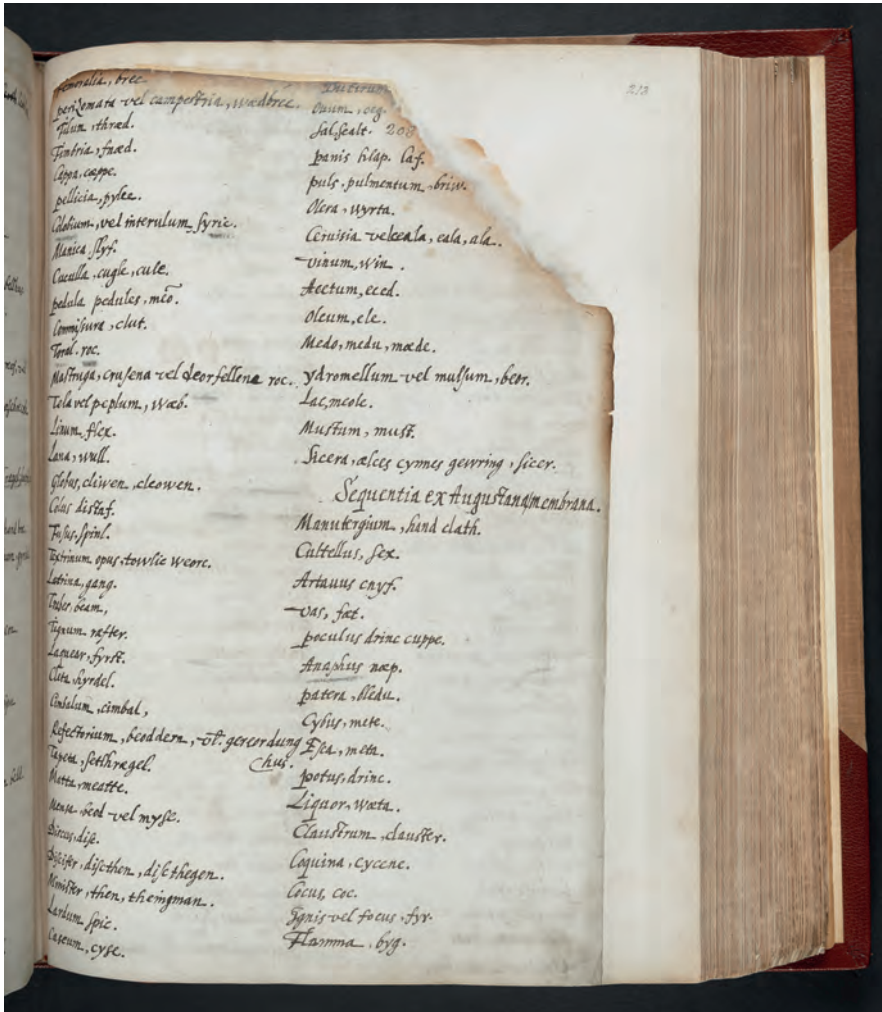 femoralia, brec.
perizomata vel campestria, wædbrec.
filum, thræd.
Fimbria, fnæd.
Cappa, cæppe.
pellicia, pylce.
Colobium, vel interulum, syric.
Manica, slyf.
Cuculla, cugle, cule.
pedula pedules, meō.
Commissura, clut.
Toral, roc.
Mastruga, crusena vel deorfellene roc.
Tela vel peplum, wæb.
Linum, flex.
Lana, wull.
Globus, cliwen, cleowen.
Colus distaf.
Fusus, spinl.
Textrinum opus, towlic weorc.
Latrina, gang.
Trabes, beam,
Tignum ræfter.
Laquear, fyrst.
Clita hyrdel.
Cimbalum, cimbal,
Refectorium, beoddern, vł. gereordung
hus.
Tapeta, setlhrægel.
Matta, meatte.
Mensa, beod vel myse.
Discus, disc.
Discifer, discthen, discthegen.
Minister, then, theingman.
Lardum, spic.
Caseum, cyse.
213
Butirum
Ovum, æg.
Sal, sealt. 208
panis hlap. laf.
puls, pulmentum, briw.
Olera, wyrta.
Cervisia vel celia, eala, ala.
vinum, win.
Acetum, eced.
Oleum, ele.
Medo, medu, mæde.
ydromellum vel mulsum, beor.
Lac, meolc.
Mustum, must.
Sicera, ælces cynnes gewring, sicer.
Sequentia ex Augustana membrana.
Manutergium, hand clath.
Cultellus, sex.
Artavus cnyf.
vas, fæt.
poculus drinc cuppe.
Anaphus næp.
patera, bledu.
Cybus, mete.
Esca, meta.
potus, drinc.
Liquor, wæta.
Claustrum, clauster.
Coquina, cycene.
Cocus, coc.
Ignis vel focus, fyr.
Flamma, byg.